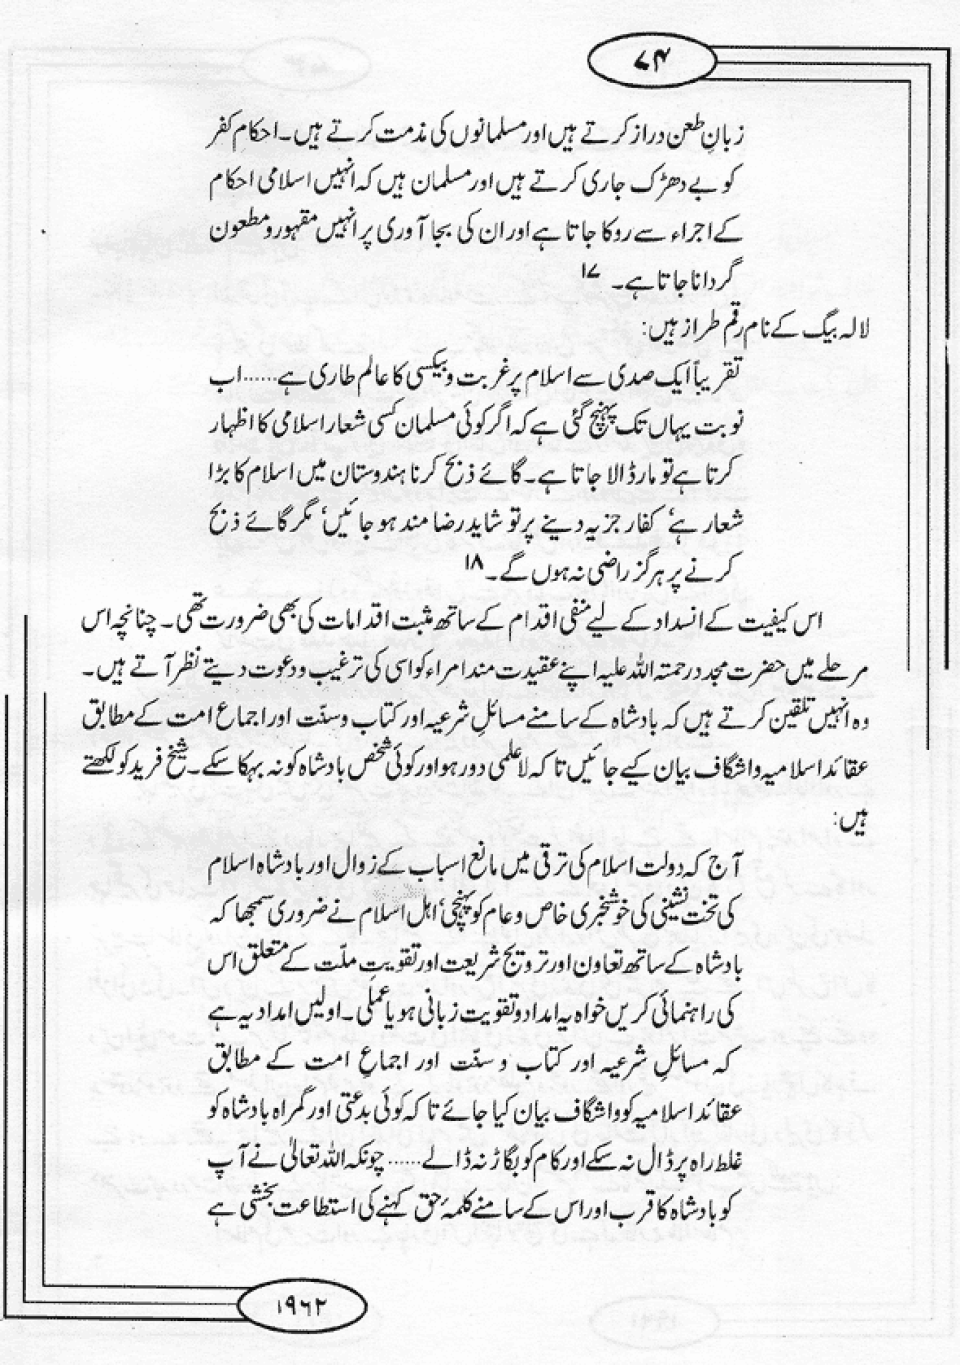 ۷۴
زبانِ طعن دراز کرتے ہیں اور مسلمانوں کی مذمت کرتے ہیں۔ احکامِ کفر
کو بے دھڑک جاری کرتے ہیں اور مسلمان ہیں کہ انہیں اسلامی احکام
کے اجراء سے روکا جاتا ہے اور ان کی بجا آوری پر انہیں مقہور و مطعون
گردانا جاتا ہے۔ ۱۷
لالہ بیگ کے نام رقم طراز ہیں:
تقریباً ایک صدی سے اسلام پر غربت و بیکسی کا عالم طاری ہے...... اب
نوبت یہاں تک پہنچ گئی ہے کہ اگر کوئی مسلمان کسی شعار اسلامی کا اظہار
کرتا ہے تو مار ڈالا جاتا ہے۔ گائے ذبح کرنا ہندوستان میں اسلام کا بڑا
شعار ہے، کفار جزیہ دینے پر تو شاید رضا مند ہو جائیں، مگر گائے ذبح
کرنے پر ہرگز راضی نہ ہوں گے۔ ۱۸
اس کیفیت کے انسداد کے لیے منفی اقدام کے ساتھ مثبت اقدامات کی بھی ضرورت تھی۔ چنانچہ اس
مرحلے میں حضرت مجدد رحمتہ اللہ علیہ اپنے عقیدت مند امراء کو اسی کی ترغیب و دعوت دیتے نظر آتے ہیں۔
وہ انہیں تلقین کرتے ہیں کہ بادشاہ کے سامنے مسائلِ شرعیہ اور کتاب و سنّت اور اجماع امت کے مطابق
عقائد اسلامیہ واشگاف بیان کیے جائیں تاکہ لا علمی دور ہو اور کوئی شخص بادشاہ کو نہ بہکا سکے۔ شیخ فرید کو لکھتے
ہیں:
آج کہ دولت اسلام کی ترقی میں مانع اسباب کے زوال اور بادشاہ اسلام
کی تخت نشینی کی خوشخبری خاص و عام کو پہنچی، اہل اسلام نے ضروری سمجھا کہ
بادشاہ کے ساتھ تعاون اور ترویج شریعت اور تقویتِ ملّت کے متعلق اس
کی راہنمائی کریں خواہ یہ امداد و تقویت زبانی ہو یا عملی۔ اولیں امداد یہ ہے
کہ مسائلِ شرعیہ اور کتاب و سنّت اور اجماعِ امت کے مطابق
عقائد اسلامیہ کو واشگاف بیان کیا جائے تاکہ کوئی بدعتی اور گمراہ بادشاہ کو
غلط راہ پر ڈال نہ سکے اور کام کو بگاڑ نہ ڈالے...... چونکہ اللہ تعالیٰ نے آپ
کو بادشاہ کا قرب اور اس کے سامنے کلمۂ حق کہنے کی استطاعت بخشی ہے
۱۹۶۲